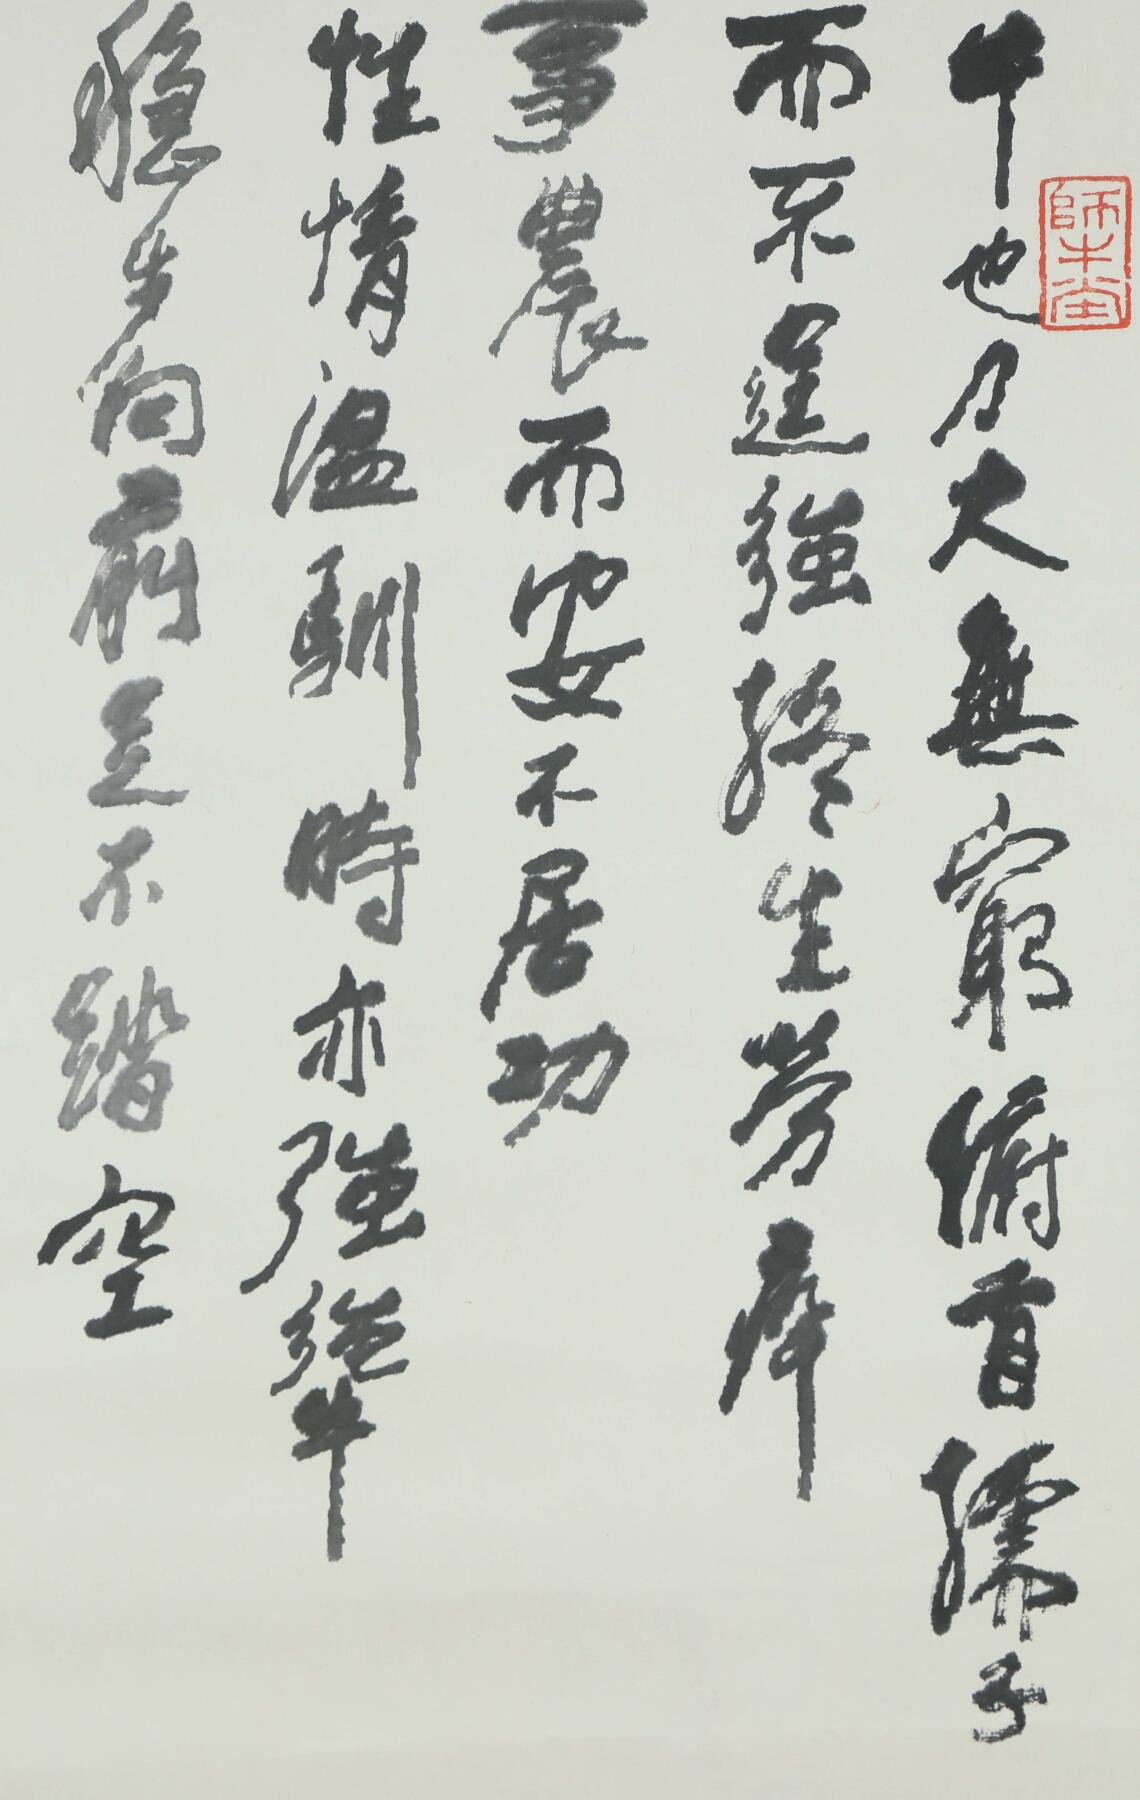 師牛堂
牛也力大無窮俯首孺子
而不逞強終生勞瘁
事農而安不居功
性情温馴時亦強犟
穩步向前足不踏空